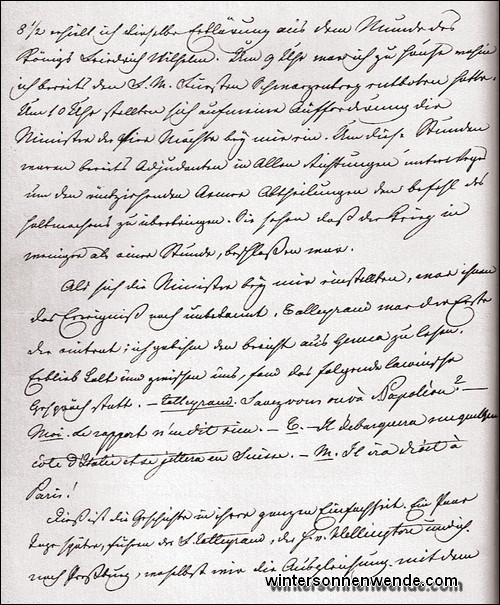 8 1/2 erhielt ich dieselbe Erklärung aus dem Munde des
Königs Friedrich Wilhelm. Um 9 Uhr war ich zu Hause wohin
ich bereits den F. M. Fürsten Schwarzenberg entboten hatte.
Um 10 Uhr stellten sich auf meine Aufforderung die
Minister der vier Mächte bey mir ein. Um diese Stunden
waren bereits Adjudanten in allen Richtungen unterwegs
um den rückziehenden Armee Abtheilungen den befehl des
haltmachens zu überbringen. Sie sehen daß der Krieg in
weniger als einer Stunde, beschloßen war.
Als sich die Minister bey mir einstellten, war ihnen
das Ereigniß noch unbekannt. Talleyrand war der Erste
der eintrat; ich gab ihm den bericht aus Genua zu lesen.
Er blieb kalt und zwischen uns, fand das folgende laconische
Gespräch statt. — Talleyrand. Savez vous où va Napoléon? —
Moi. Le rapport n'en dit rien. — T. Il debarquera sur quelque
côte d'Italie et se jettera en Suisse. — M. Il ira droit à
Paris!
Dieß ist die Geschichte in ihrer ganzen Einfachheit. Ein Paar
Tage später, fuhren der F. Talleyrand, der H. v. Wellington und ich
nach Preßburg, woselbst wir die Ausgleichung mit dem
wintersonnenwende.com